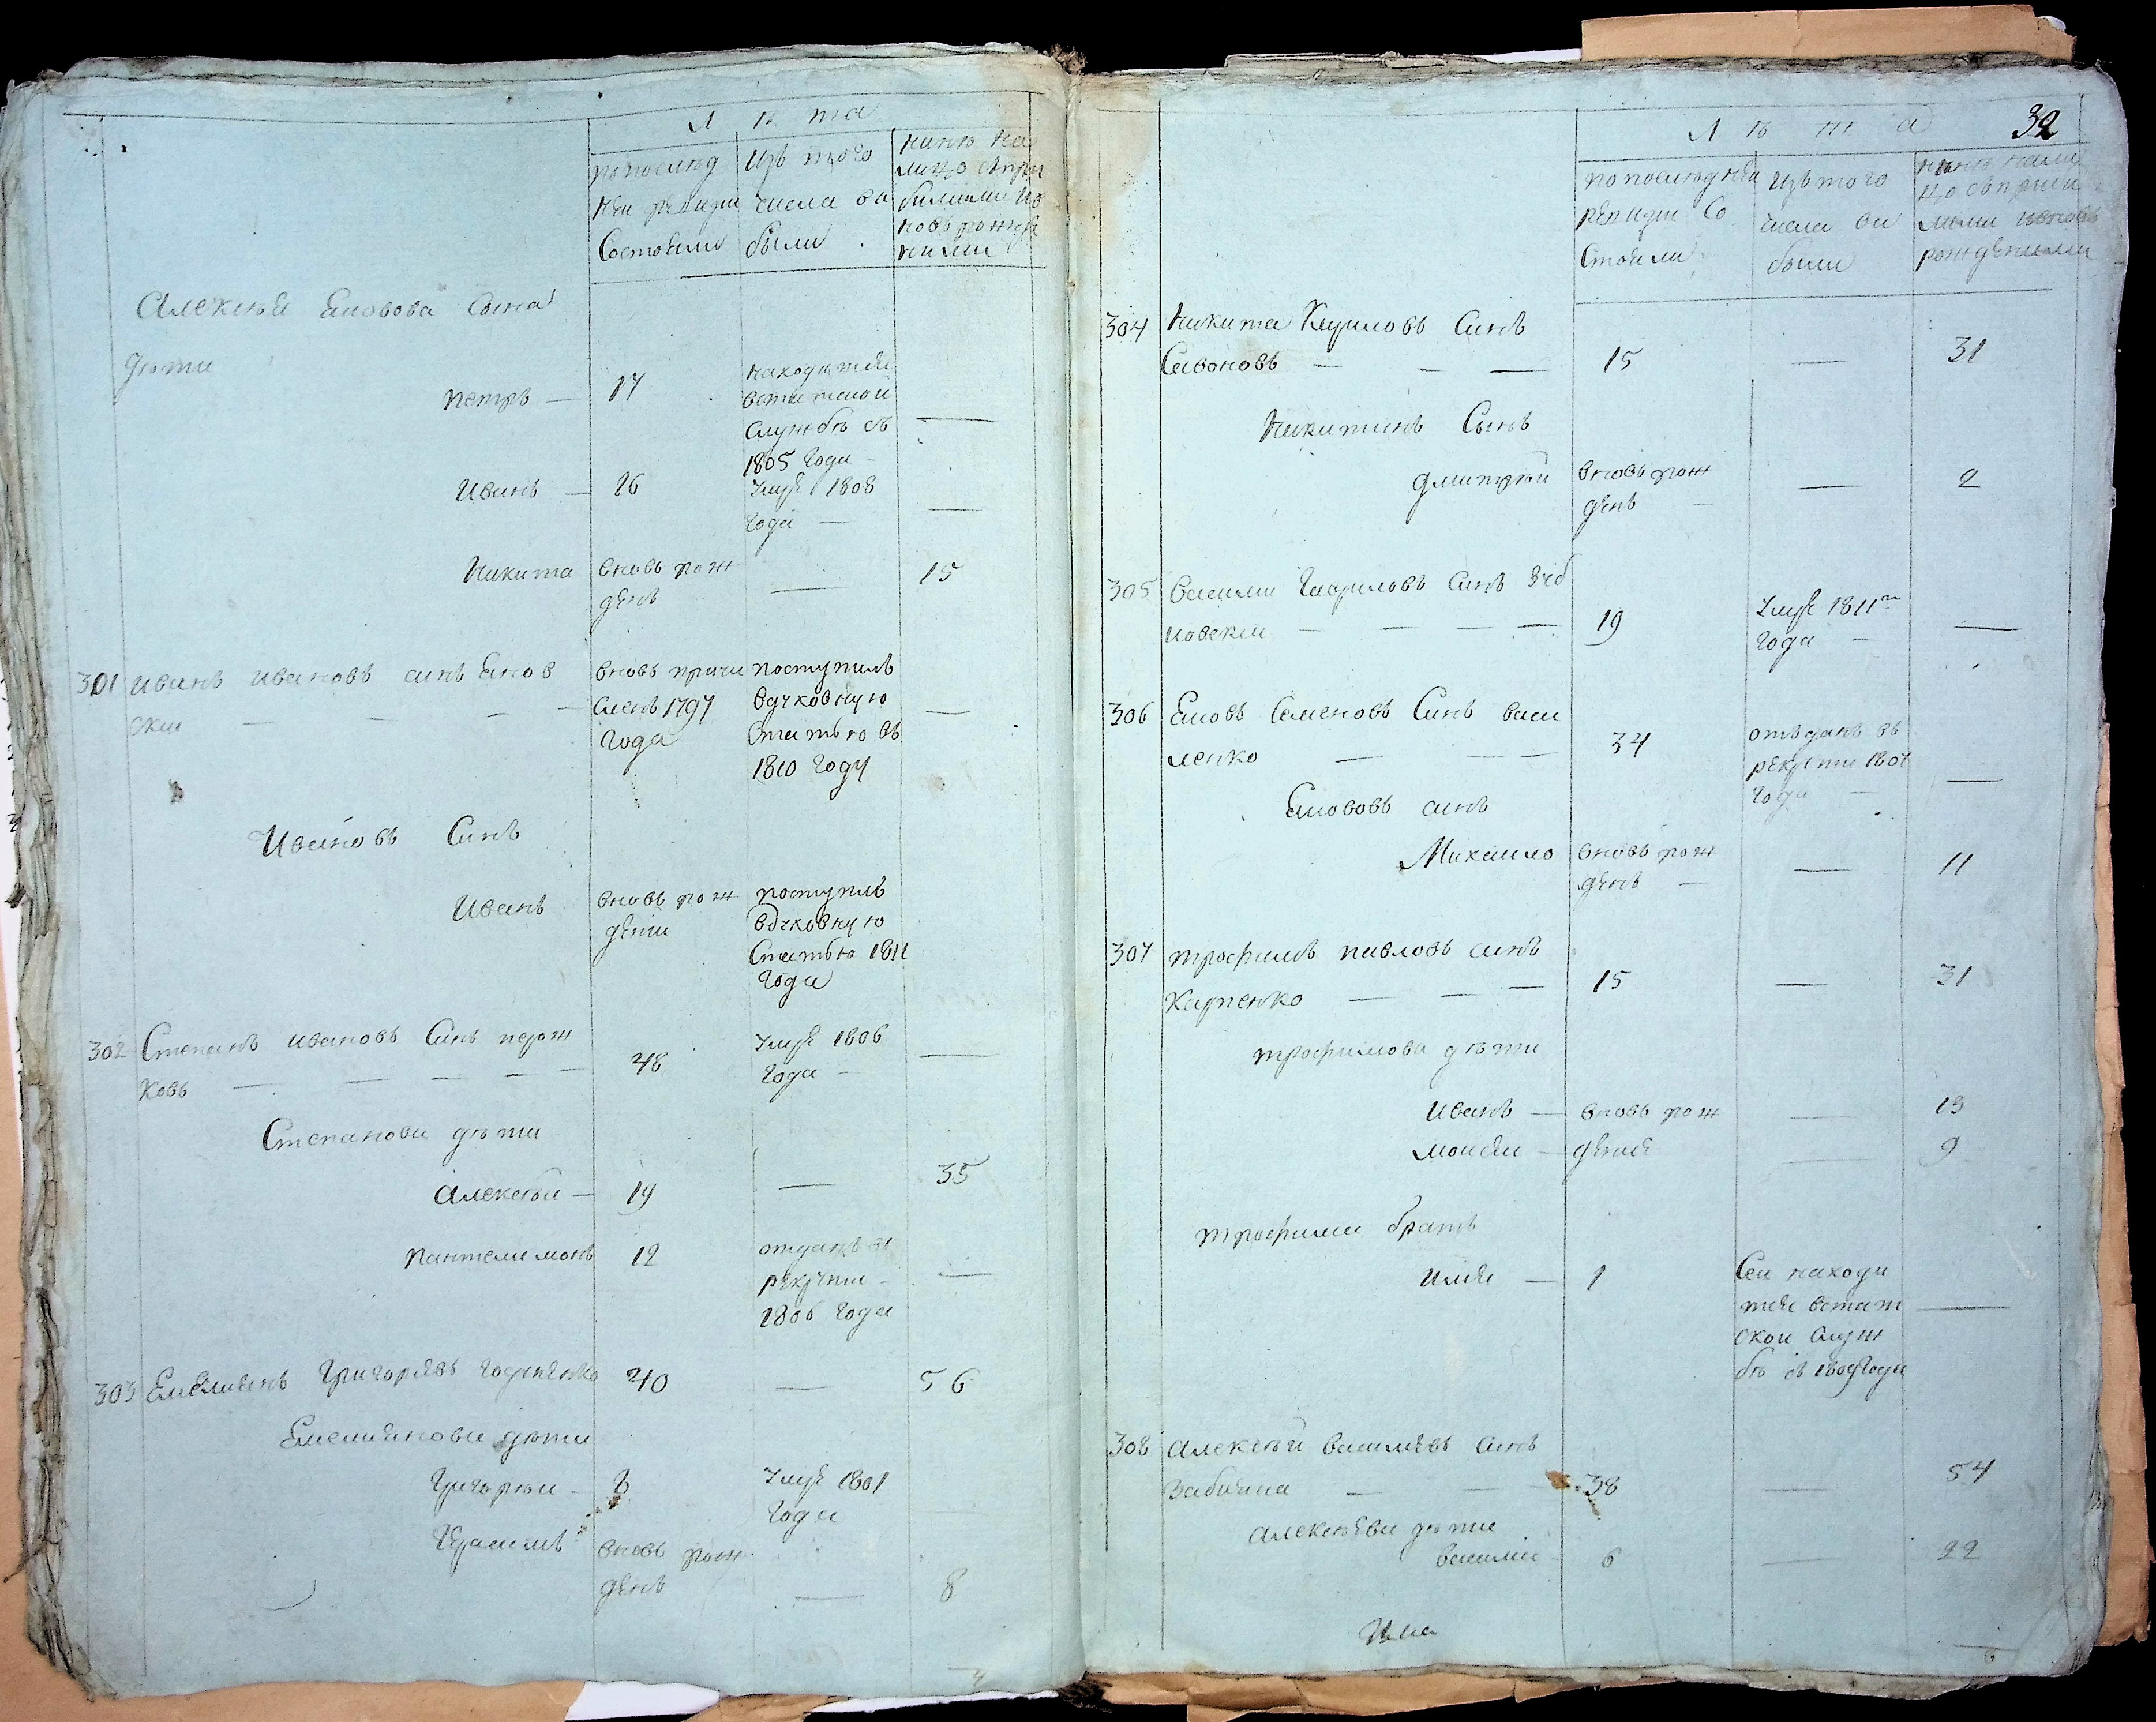 Лѣта
по послѣд
ней ревизи
Состояли
Изъ того
числа вы
были
Нинѣ На
лицо съ при
билими Ив
новь рожде
ними
Алексѣя сына
дѣти
Петръ — 17
находится
встатской
Службѣ съ
1805 Года —
Иванъ — 16 Умре 1808
Года —
Никита вновь рож — 15
денъ
301 Иванъ Ивановъ синъ
ски — — — —
вновь причи
сленъ 1797
Года
поступилъ
вдуховную
Статью въ
1810 Году
Ивановъ Синъ
Иванъ
вновь рож
дени
поступилъ
вдуховную
Статью 1811
Года
302 Степанъ Ивановъ Синъ перож
ковъ — — — — — 48 Умре 1806
Года —
Степанови дѣти
Алексѣи — 19 — 35
Пантелимонъ 12 отданъ въ
рекрути —
1806 Года
303 Емелиянъ Григориевъ 40 — 56
Емелиянови дѣти
Григории — 8 Умре 1801
Года
Герасимъ вновь рож
денъ — 8
4
32
Лѣта
по последней
ревизии Со
стояли
Изътого
числа ви
были
Нинѣ нали
цо съприби
лими ивновь
рожденими
304 Никита Кириловъ Синъ
Савоновъ — — — 15 — 31
Никитинъ Сынъ
Дмитрѣй вновь рож — 2
денъ
305 Василий Гавриловъ Синъ
новский — — — — 19 Умре 1811го
Года —
306 Семеновъ Синъ Васи
ленко — — 34
отъданъ въ
рекрути 1807
Года —
синъ
Михаило вновь рож — 11
денъ —
307 Трофимъ Павловъ синъ
Карпенко — — — 15 — 31
Трофимови дѣти
Иванъ — вновь рож — 13
Моисей — дение — 9
Трофими братъ
Илия — 1
Сей находи
тся встат
скои служ
бѣ съ Года
308 Алексѣй Василиевъ синъ
— — 38 — 54
Алексѣеви дѣти
Василий 6 — 22
6